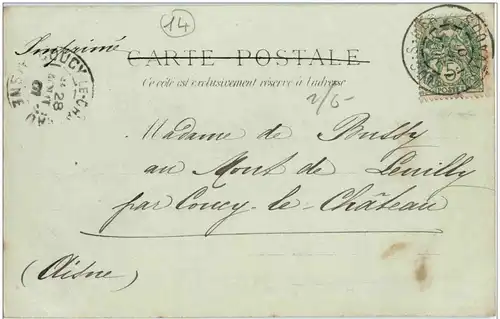 14
Imprimé
CARTE POSTALE
Ce côté est exclusivement réservé à l'adresse
COUCY-LE-CHATEAU
AISNE
28
5
POSTES
2/6-
Madame de Bussy
au Mont de Leuilly
par Coucy-le-Château
(Aisne)